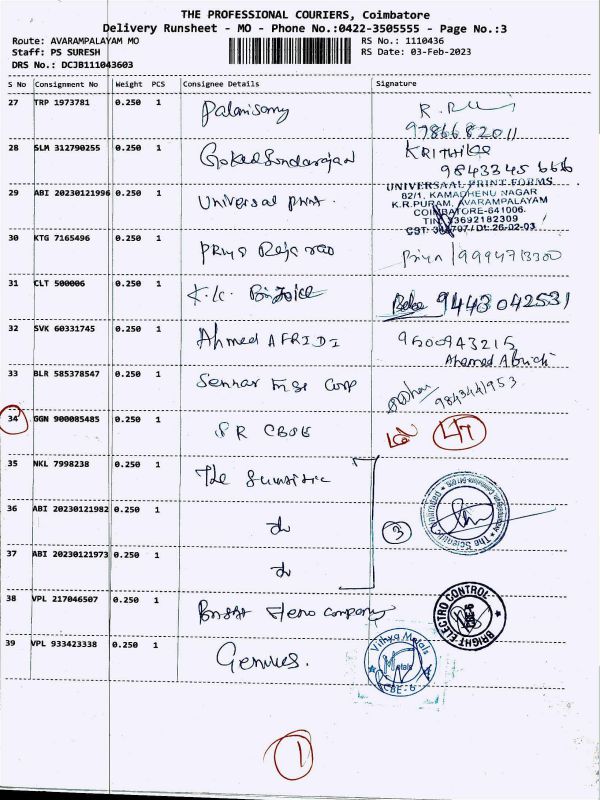 THE PROFESSIONAL COURIERS, Coimbatore
Delivery Runsheet - MO - Phone No.:0422-3505555 - Page No.:3
Route: AVARAMPALAYAM MO
RS No.: 1110436
Staff: PS SURESH
RS Date: 03-Feb-2023
DRS No.: DCJB111043603
S No Consignment No Weight PCS Consignee Details Signature
27 TRP 1973781 0.250 1 Palanisamy
9786682011
28 SLM 312790255 0.250 1 KRITHIKA
9843345666
29 ABI 20230121996 0.250 1 Universal print.
UNIVERSAAL PRINT FORMS
82/1, KAMADHENU NAGAR
K.R.PURAM, AVARAMPALAYAM
COIMBATORE-641006.
TIN: 33692182309
CST: Dt: 26-02-03
30 KTG 7165496 0.250 1 Priya Raja Priya 9994713300
31 CLT 500006 0.250 1 K.K. 9443042531
32 SVK 60331745 0.250 1 Ahmed AFRIDI 9500943215
Ahamed
33 BLR 585378547 0.250 1 Corp 984341953
34 GGN 900085485 0.250 1 S R 47
35 NKL 7998238 0.250 1 The
36 ABI 20230121982 0.250 1 3
37 ABI 20230121973 0.250 1
38 VPL 217046507 0.250 1 company
BRIGHT ELECTRO CONTROL
CBE-6
39 VPL 933423338 0.250 1 Genives.
Vithya Metals
CBE-6
1